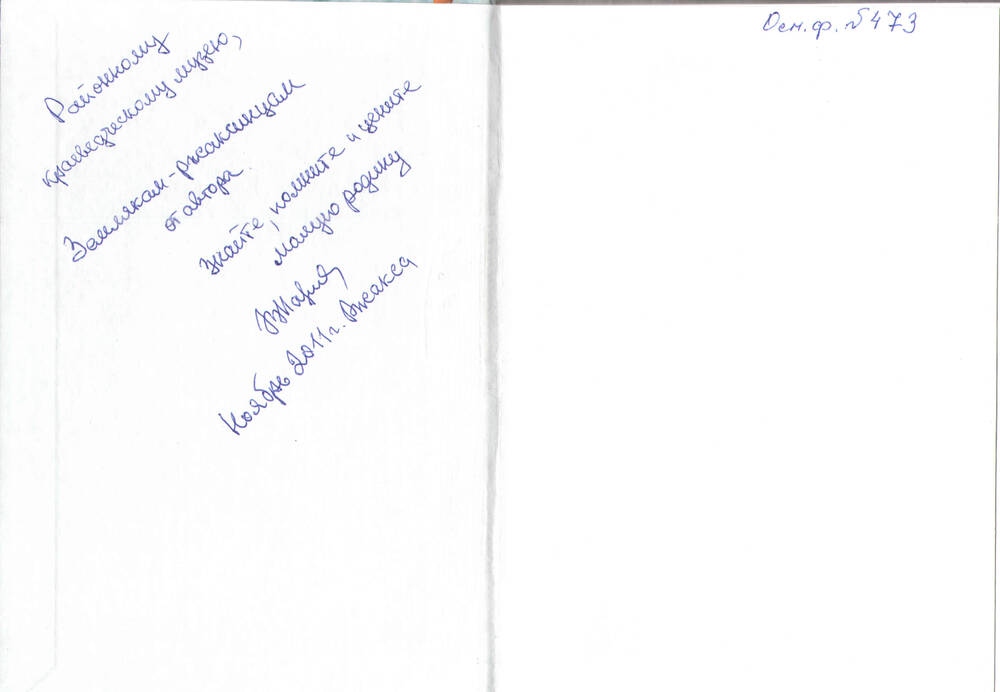 Районному
краеведческому музею,
Землякам-ржаксинцам
от автора.
Знайте, помните и цените
малую родину
Ноябрь 2011г. Ржакса
Осн.ф. №473